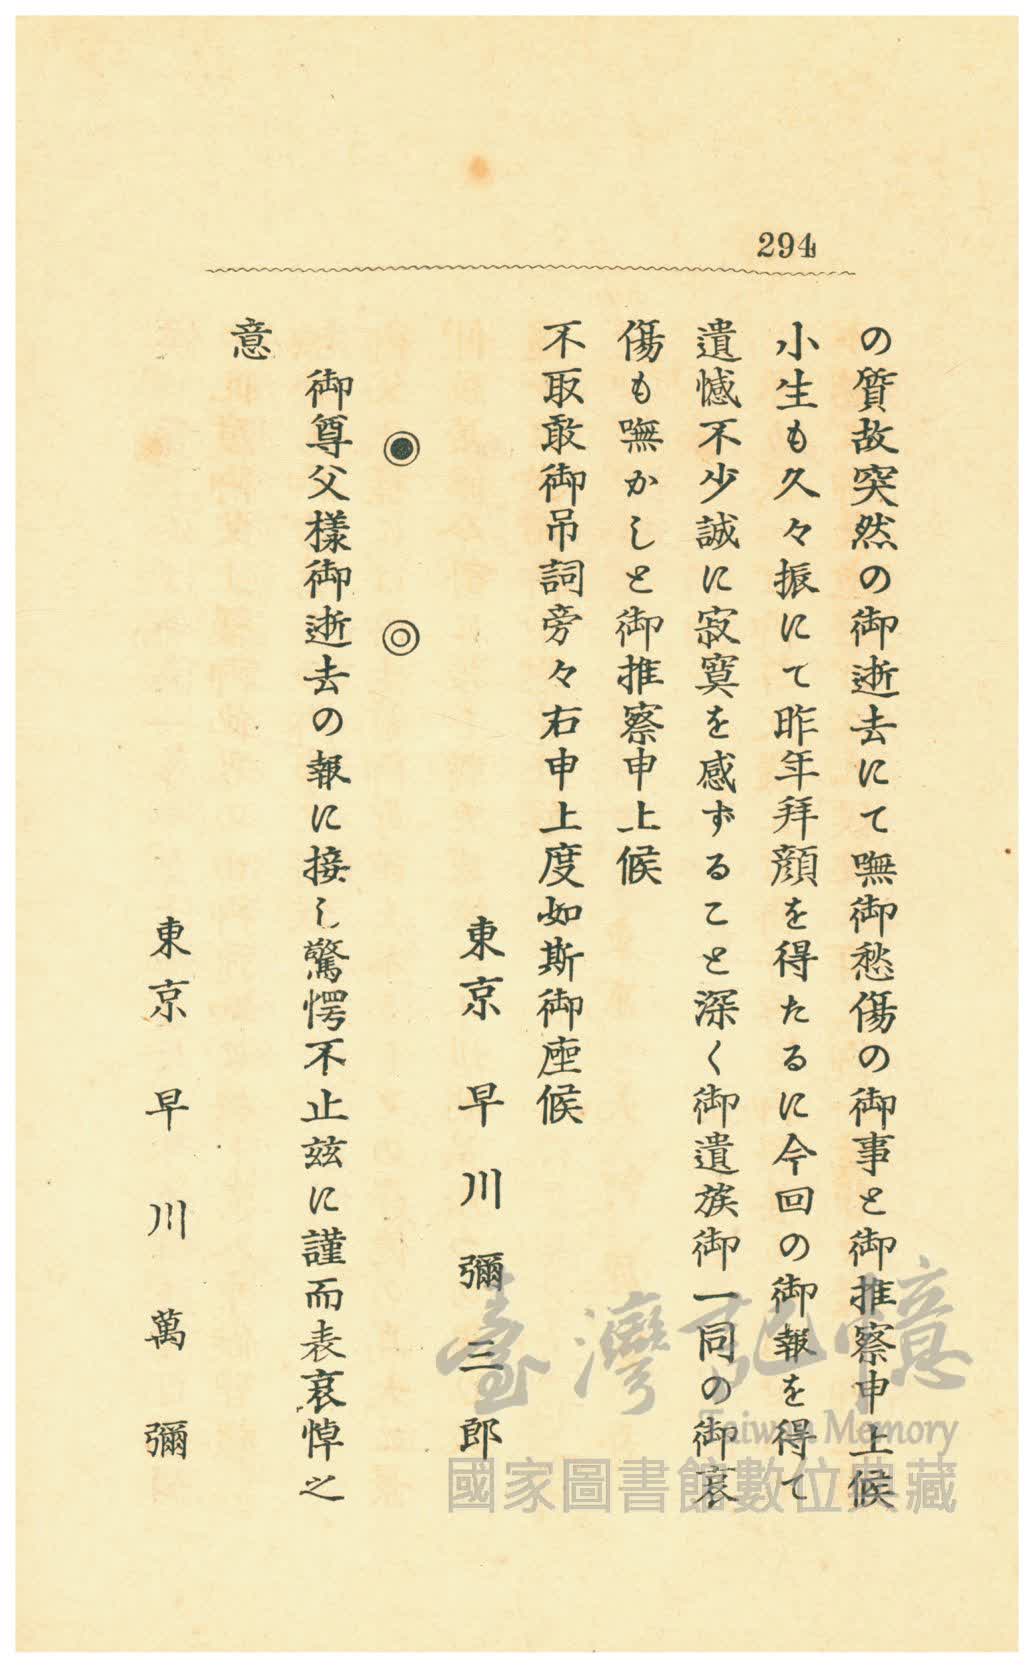 294
の質故突然の御逝去にて嘸御愁傷の御事と御推察申上候
小生も久々振にて昨年拜顔を得たるに今回の御報を得て
遺憾不少誠に寂寞を感ずること深く御遺族御一同の御哀
傷も嘸かしと御推察申上候
不取敢御吊詞旁々右申上度如斯御座候
東京 早川彌三郎
◉ ◎
御尊父樣御逝去の報に接し驚愕不止玆に謹而表哀悼之
意
東京 早川萬彌
臺灣記憶
Taiwan Memory
國家圖書館數位典藏